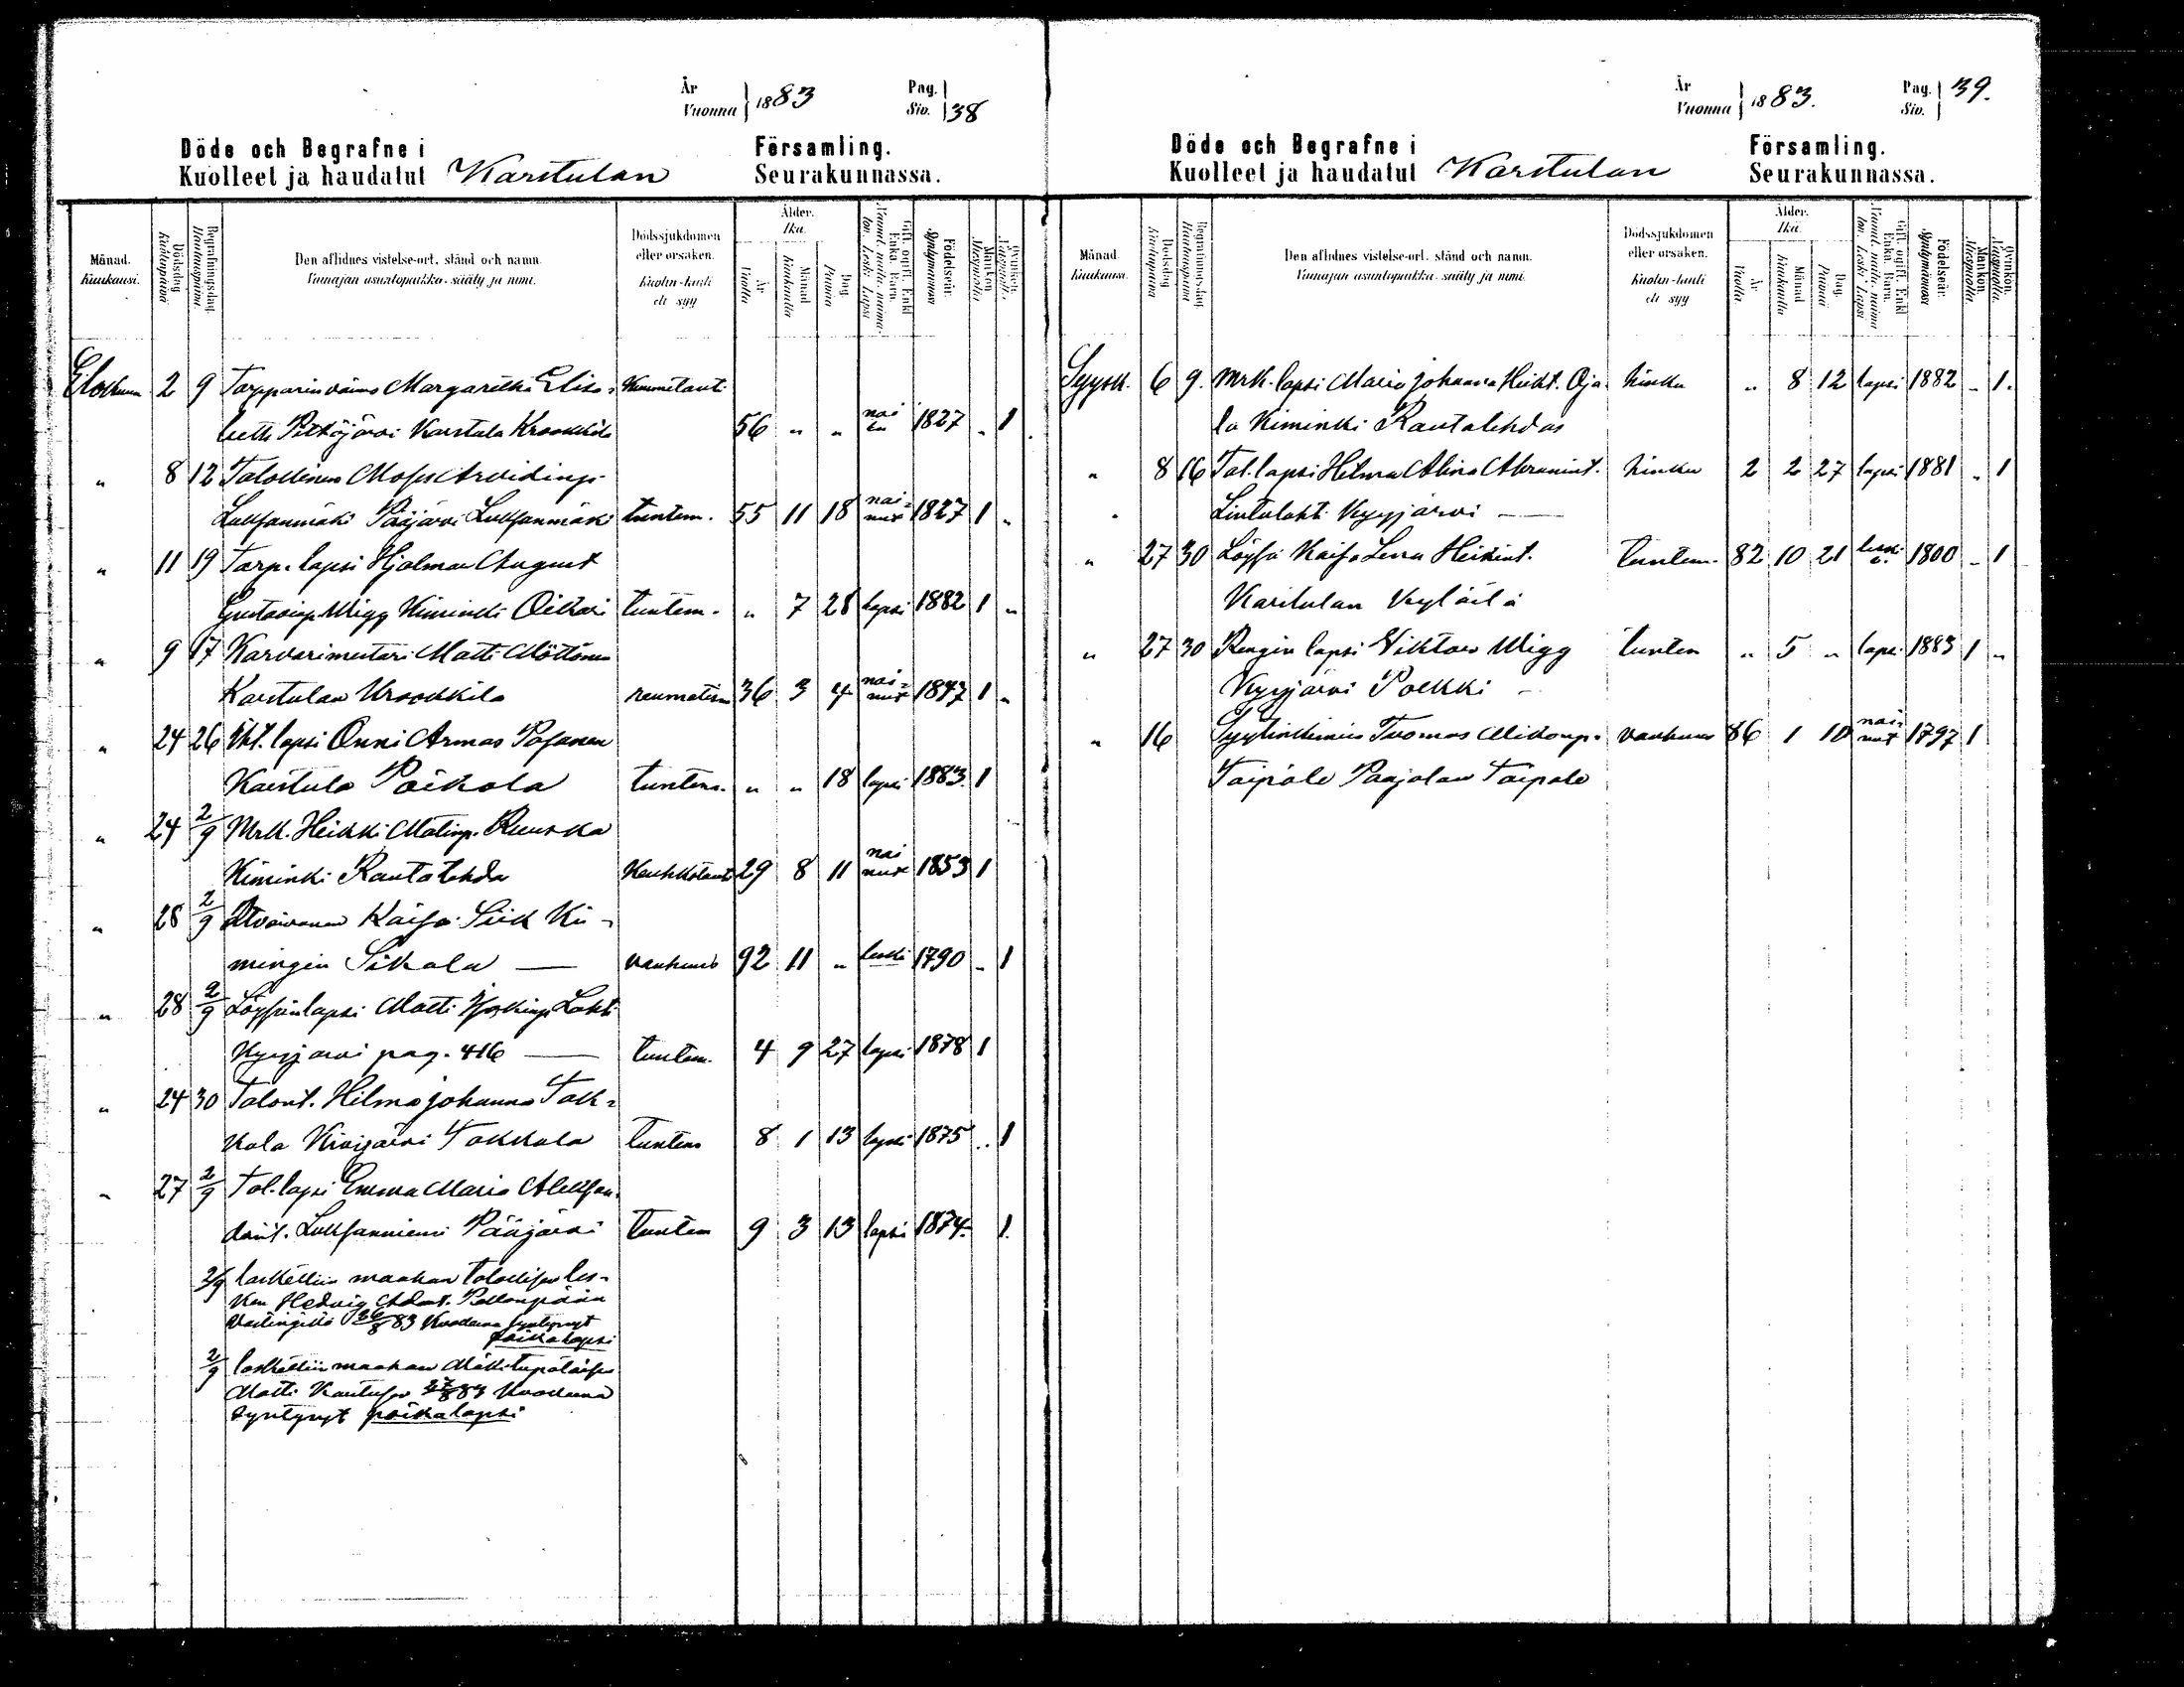 År Vuonna 1883 Pag. Siv. 38
Döde och Begrafne i Församling.
Kuolleet ja haudatut Karstulan Seurakunnassa.
Månad. Kuukausi.
Dödsdag Kuolinpäivä
Begrafningsdag. Hautauspäivä.
Den aflidnes vistelse-ort, stånd och namn.
Vainajan asuntopaikka, sääty ja nimi.
Dödssjukdomen eller orsaken.
Kuolin-tauti eli syy
Ålder. Ikä.
År Vuotta
Månad Kuukautta
Dag. Päivää
Gift, ogift, Enkl. Enka, Barn.
Födelseår. Syntymävuosi
Mankön Miespuolia
Qvinkön. Vaispuolia.
Elokuun 2 9 Tarpparin vaimo Margaretha Elisa=
beth Pitkäjärvi Karstula Krookkila 56 " " nai 1827 " 1
" 8 12 Talollinen Moses Arvidinp.
Luksanmäki Pääjärvi Luksanmäki tuntem. 55 11 18 nai=nut 1827 1 "
" 11 19 Torp. lapsi Hjalmar August
Gustavinp. Wigg Kiminki Oikari tuntem. " 7 28 lapsi 1882 1 "
" 9 17 Karvarimestari Matti Möttönen
Karstulan Krookkila reumatism 36 3 4 nai=nut 1847 1 "
" 24 26 lapsi Onni Armas Pajanen
Karstula Poikola tuntem. " " 18 lapsi 1883. 1
" 24 2/9 Mrk. Heikki Matinp. Ruuska
Kiminki Rautalehda Keuhkotauti 29 8 11 nai nut 1853 1
" 28 2/9 Kaisa Siik Ki-
mingin Sikala vanhuus 92 11 " leski 1790 " 1
" 28 2/9 Löysin lapsi Matti Lahti
Kyyjärvi pag. 416 tuntem. 4 9 27 lapsi 1878 1
" 24 30 Talont. Hilma Johanna Tak=
kala Kivijärvi Takkala tuntem 8 1 13 lapsi 1875 " 1
" 27 2/9 Tal. lapsi Emma Maria Aleksan
drint. Luksanniemi Pääjärvi tuntem 9 3 13 lapsi 1874. 1.
2/9 laskettiin maahan talollisen les-
ken Hedvig Adamt. Pellonpään
26/8 83 kuolleena syntynyt
poikalapsi
2/9 laskettiin maahan Mäkitupalaisen
Matti Kautusen 27/8 83 kuolleena
syntynyt poikalapsi
År Vuonna 1883. Pag. Siv. 39.
Döde och Begrafne i Församling.
Kuolleet ja haudatut Karstulan Seurakunnassa.
Månad. Kuukausi.
Dödsdag Kuolinpäivä
Begrafningsdag Hautauspäivä
Den aflidnes vistelse-ort, stånd och namn.
Vainajan asuntopaikka, sääty ja nimi.
Dödssjukdomen eller orsaken.
Kuolin-tauti eli syy
Ålder. Ikä.
År Vuotta
Månad Kuukautta
Dag. Päivää
Gift, ogift, Enkl Enka, Barn.
Födelseår. Syntymävuosi
Mankön. Miespuolia
Qvinkön. Vaispuolia.
Syysk. 6 9. Mrk. lapsi Maria Johanna Heikt. Oja- hinku " 8 12 lapsi 1882 " 1.
la Kiminki Rautalehdas
" 8 16 Tal. lapsi Helma Alina Abramint. hinku 2 2 27 lapsi 1881 " 1
Lintulahti Kyyjärvi
" 27 30 Löysä Kaisa Lena Heikint. tuntem. 82 10 21 leski 1800 " 1
Karstulan Kyläila
" 27 30 Rengin lapsi Viktor Wigg tuntem " 5 " lapsi 1883 1 "
Kyyjärvi Polkki
" 16 Syytinkimies Tuomas Mikonp. vanhuus 86 1 10 nai=nut 1797 1
Taipale Paajalan Taipale